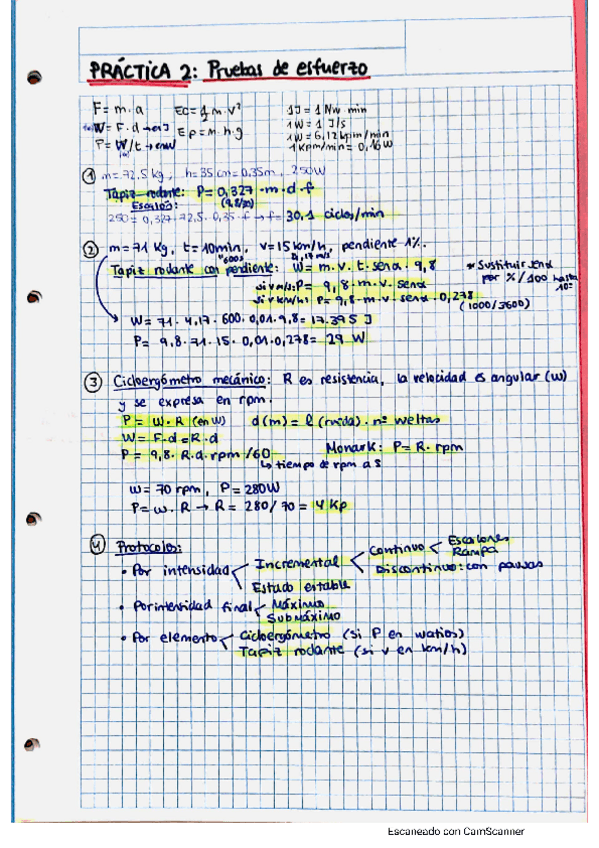 PRÁCTICA 2: Pruebas de esfuerzo
F= m·a EC= 1/2 m·v² 1J = 1 Nw·min
W= F·d → en J Ep= m·h·g 1W = 1 J/s
P= W/t → en W 1W = 6,12 kpm/min
1 kpm/min = 0,16 W
① m=72,5 kg, h=35 cm=0,35m, 250W
Tapiz rodante: P= 0,327·m·d·f
Escalón: (9,8/30)
250 = 0,327·72,5·0,35·f → f= 30,1 ciclos/min
② m=71 Kg, t=10min, v=15 km/h, pendiente 1%.
600s 4,17 m/s
Tapiz rodante con pendiente: W= m·v·t·senα·9,8 * Sustituir senα
si v m/s: P= 9,8·m·v·senα por %/100 hasta
si v km/h: P= 9,8·m·v·senα·0,278 10º
(1000/3600)
W= 71·4,17·600·0,01·9,8= 17.395 J
P= 9,8·71·15·0,01·0,278= 29 W
③ Cicloergómetro mecánico: R es resistencia, la velocidad es angular (w)
y se expresa en rpm.
P= W·R (en W) d(m) = l (rueda)· nº vueltas
W= F·d = R·d
P= 9,8·R·d·rpm/60 Monark: P= R·rpm
↳ tiempo de rpm a s
w= 70 rpm, P= 280W
P= w·R → R= 280/70 = 4 Kp
④ Protocolos:
• Por intensidad Incremental Continuo Escalones
Rampa
Discontinuo: con pausas
Estado estable
• Por intensidad final Máximo
Submáximo
• Por elemento Cicloergómetro (si P en watios)
Tapiz rodante (si v en km/h)
Escaneado con CamScanner